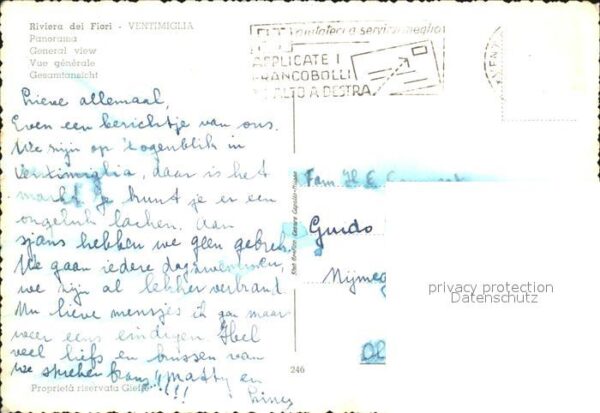 Riviera dei Fiori - VENTIMIGLIA
Panorama
General view
Vue générale
Gesamtansicht
PT aiutateci a servirvi meglio
APPLICATE I
FRANCOBOLLI
IN ALTO A DESTRA
Lieve allemaal,
Even een berichtje van ons.
We zijn op 't ogenblik in
Ventimiglia, daar is het
markt. Je kunt je er een
ongeluk lachen. Aan
sjans hebben we geen gebrek
We gaan iedere dag zwemmen,
we zijn al lekker verbrand
Nu lieve mensjes ik ga maar
weer eens eindigen. Heel
veel liefs en kussen van
We spreken frans!! Matty en
!!!
Fam. H. E.
Guido
Nijmeg
246
Proprietà riservata
privacy protection
Datenschutz